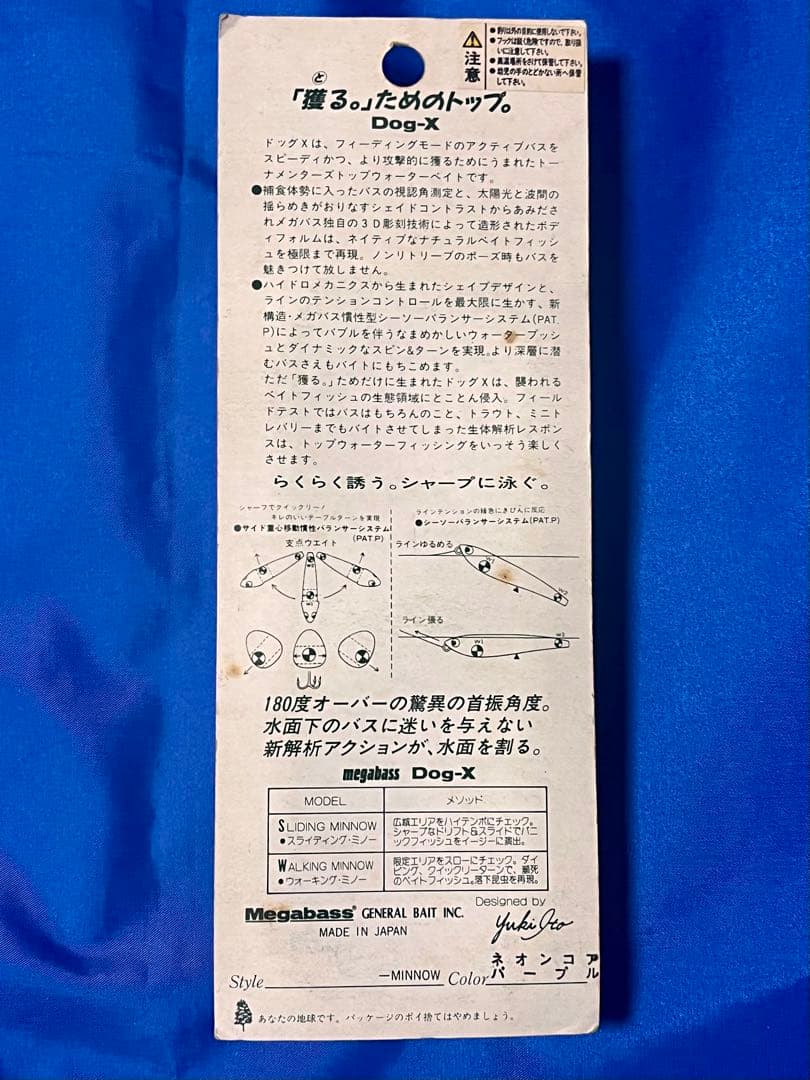 注意
●釣り以外の目的に使用しないで下さい。
●フックは鋭く危険ですので、取り扱
いに注意して下さい。
●高温場所をさけて保管して下さい。
●幼児の手のとどかない所へ保管
して下さい。
と
「獲る。」ためのトップ。
Dog-X
ドッグXは、フィーディングモードのアクティブバスを
スピーディかつ、より攻撃的に獲るためにうまれたトー
ナメンターズトップウォーターベイトです。
●補食体勢に入ったバスの視認角測定と、太陽光と波間の
揺らめきがおりなすシェイドコントラストからあみださ
れメガバス独自の3D彫刻技術によって造形されたボデ
ィフォルムは、ネイティブなナチュラルベイトフィッシ
ュを極限まで再現。ノンリトリーブのポーズ時もバスを
魅きつけて放しません。
●ハイドロメカニクスから生まれたシェイプデザインと、
ラインのテンションコントロールを最大限に生かす、新
構造・メガバス慣性型シーソーバランサーシステム(PAT.
P)によってバブルを伴うなまめかしいウォータープッシ
ュとダイナミックなスピン&ターンを実現。より深層に潜
むバスさえもバイトにもちこめます。
ただ「獲る。」ためだけに生まれたドッグXは、襲われる
ベイトフィッシュの生態領域にとことん侵入。フィール
ドテストではバスはもちろんのこと、トラウト、ミニト
レバリーまでもバイトさせてしまった生体解析レスポン
スは、トップウォーターフィッシングをいっそう楽しく
させます。
らくらく誘う。シャープに泳ぐ。
シャープでクイックリー!
キレのいいテーブルターンを実現
●サイド重心移動慣性バランサーシステム
(PAT.P)
支点ウエイト
ラインテンションの緩急にきびんに反応
●シーソーバランサーシステム(PAT.P)
ラインゆるめる
ライン張る
180度オーバーの驚異の首振角度。
水面下のバスに迷いを与えない
新解析アクションが、水面を割る。
megabass Dog-X
MODEL
メソッド
SLIDING MINNOW
●スライディング・ミノー
広域エリアをハイテンポにチェック。
シャープなドリフト&スライドでパニ
ックフィッシュをイージーに演出。
WALKING MINNOW
●ウォーキング・ミノー
限定エリアをスローにチェック。ダイ
ビング、クイックリーターンで、瀕死
のベイトフィッシュ。落下昆虫を再現。
Megabass® GENERAL BAIT INC.
MADE IN JAPAN
Designed by
Yuki Ito
Style
—MINNOW
Color
ネオンコア
パープル
あなたの地球です。パッケージのポイ捨てはやめましょう。